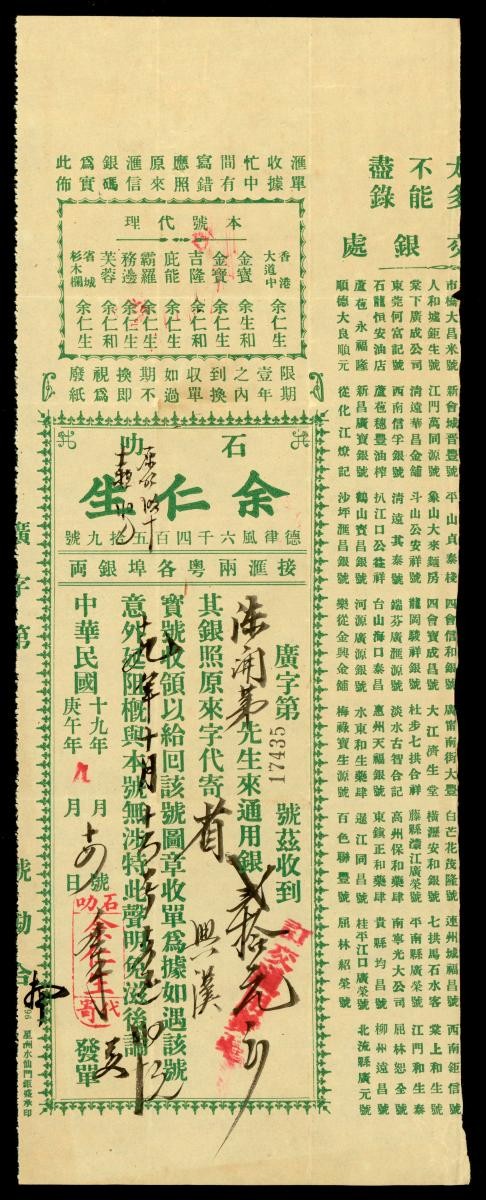 不能
盡錄
銀處
市橋大昌米號 新會城晋豐號 平山貞泰棧 四會信和銀號 廣甯南街大豐 白芒花茂隆號 連州城福昌號 西南鉅信號
人和墟鉅生號 江門萬同源號 象山大來麵房 四會寶成昌號 大江濟生堂 橫瀝安和銀號 七拱馬石水客 棠上和生號
棠下廣成公司 清遠華昌金舖 斗山公安祥號 龍岡駿祥銀號 杜步七拱合祥 藤縣濃江廣榮號 平南縣廣榮號 江門和生泰
東莞何富記號 西南信孚銀號 清遠其泰號 端芬廣滙源號 淡水古智合記 高州保和藥肆 南寧光大公司 屈林恕全號
石龍恒安油店 蘆苞穗豐油榨 扒江口公益祥 台山海口泰昌 惠州天福銀號 東鎭正和藥肆 貴縣均昌號 柳州遠昌號
蘆苞永福隆 新昌廣寶銀號 鶴山寶昌銀號 河源廣源銀號 水東和生藥肆 邏江同昌號 桂平江口廣榮號 北流縣廣元號
順德大良順元 從化江燎記 沙坪匯昌銀號 樂從金興金舖 梅祿寶生源號 百色聯豐號 屈林紹榮號
滙單
收據
忙中
間有
寫錯
應照
原來
滙信
銀碼
爲實
此佈
本號代理
香港大道中 余仁生
金寶 余永和
金寶 余仁生
吉隆 余仁和
庇能 余仁生
霸羅 余仁生
務邊 余仁生
芙蓉 余仁和
省城杉木欄 余仁生
限期
壹年
之内
到換
收單
如過
期不
換即
視爲
廢紙
石叻
余仁生
德律風六千四百五拾九號
接滙兩粤各埠銀両
廣字第17435號茲收到
先生來通用銀貳拾元
其銀照原來字代寄省
興漢
寳號收領以給回該號圖章收單爲據如遇該號
意外延阻概與本號無涉特此聲明免滋後論
中華民國十九年 庚午年九月 月 號 日
發單
石叻
代寄
廣字第
星洲水仙門鉅盛承印